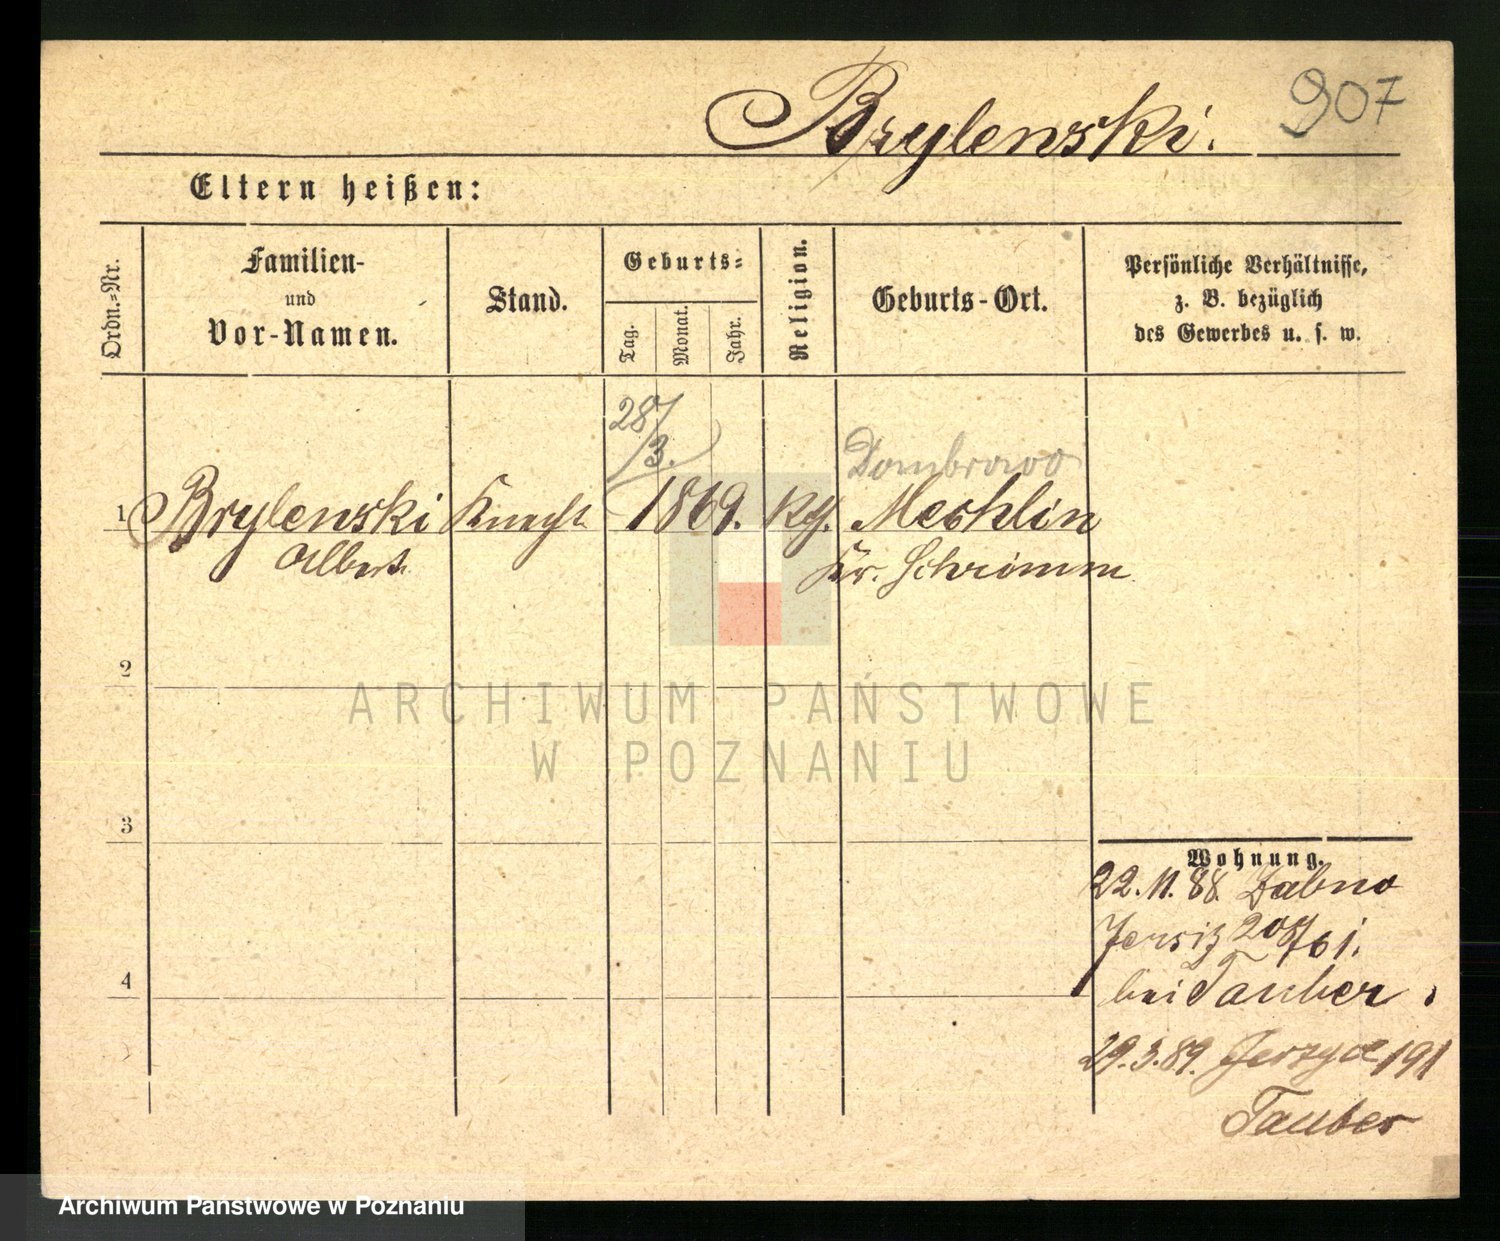 Brylenski.
907
Eltern heißen:
Ordn.=Nr.
Familien-
und
Vor-Namen.
Stand.
Geburts=
Tag.
Monat.
Jahr.
Religion.
Geburts-Ort.
Persönliche Verhältnisse,
z. B. bezüglich
des Gewerbes u. s. w.
28/3.
Dombrowo
1 Brylenski Knecht 1869. Kth. Mechlin
Albert Kr. Schrimm
2
ARCHIWUM PAŃSTWOWE
W POZNANIU
3
Wohnung.
22.11.88. Żabno
Jersiz
bei Tauber
4
29.3.89. Jerzyce 191
Tauber
Archiwum Państwowe w Poznaniu